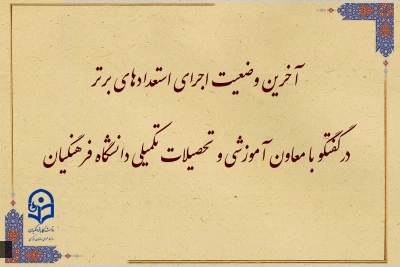 آخرین وضعیت اجرای استعدادهای برتر
در گفتگو با معاون آموزشی و تحصیلات تکمیلی دانشگاه فرهنگیان